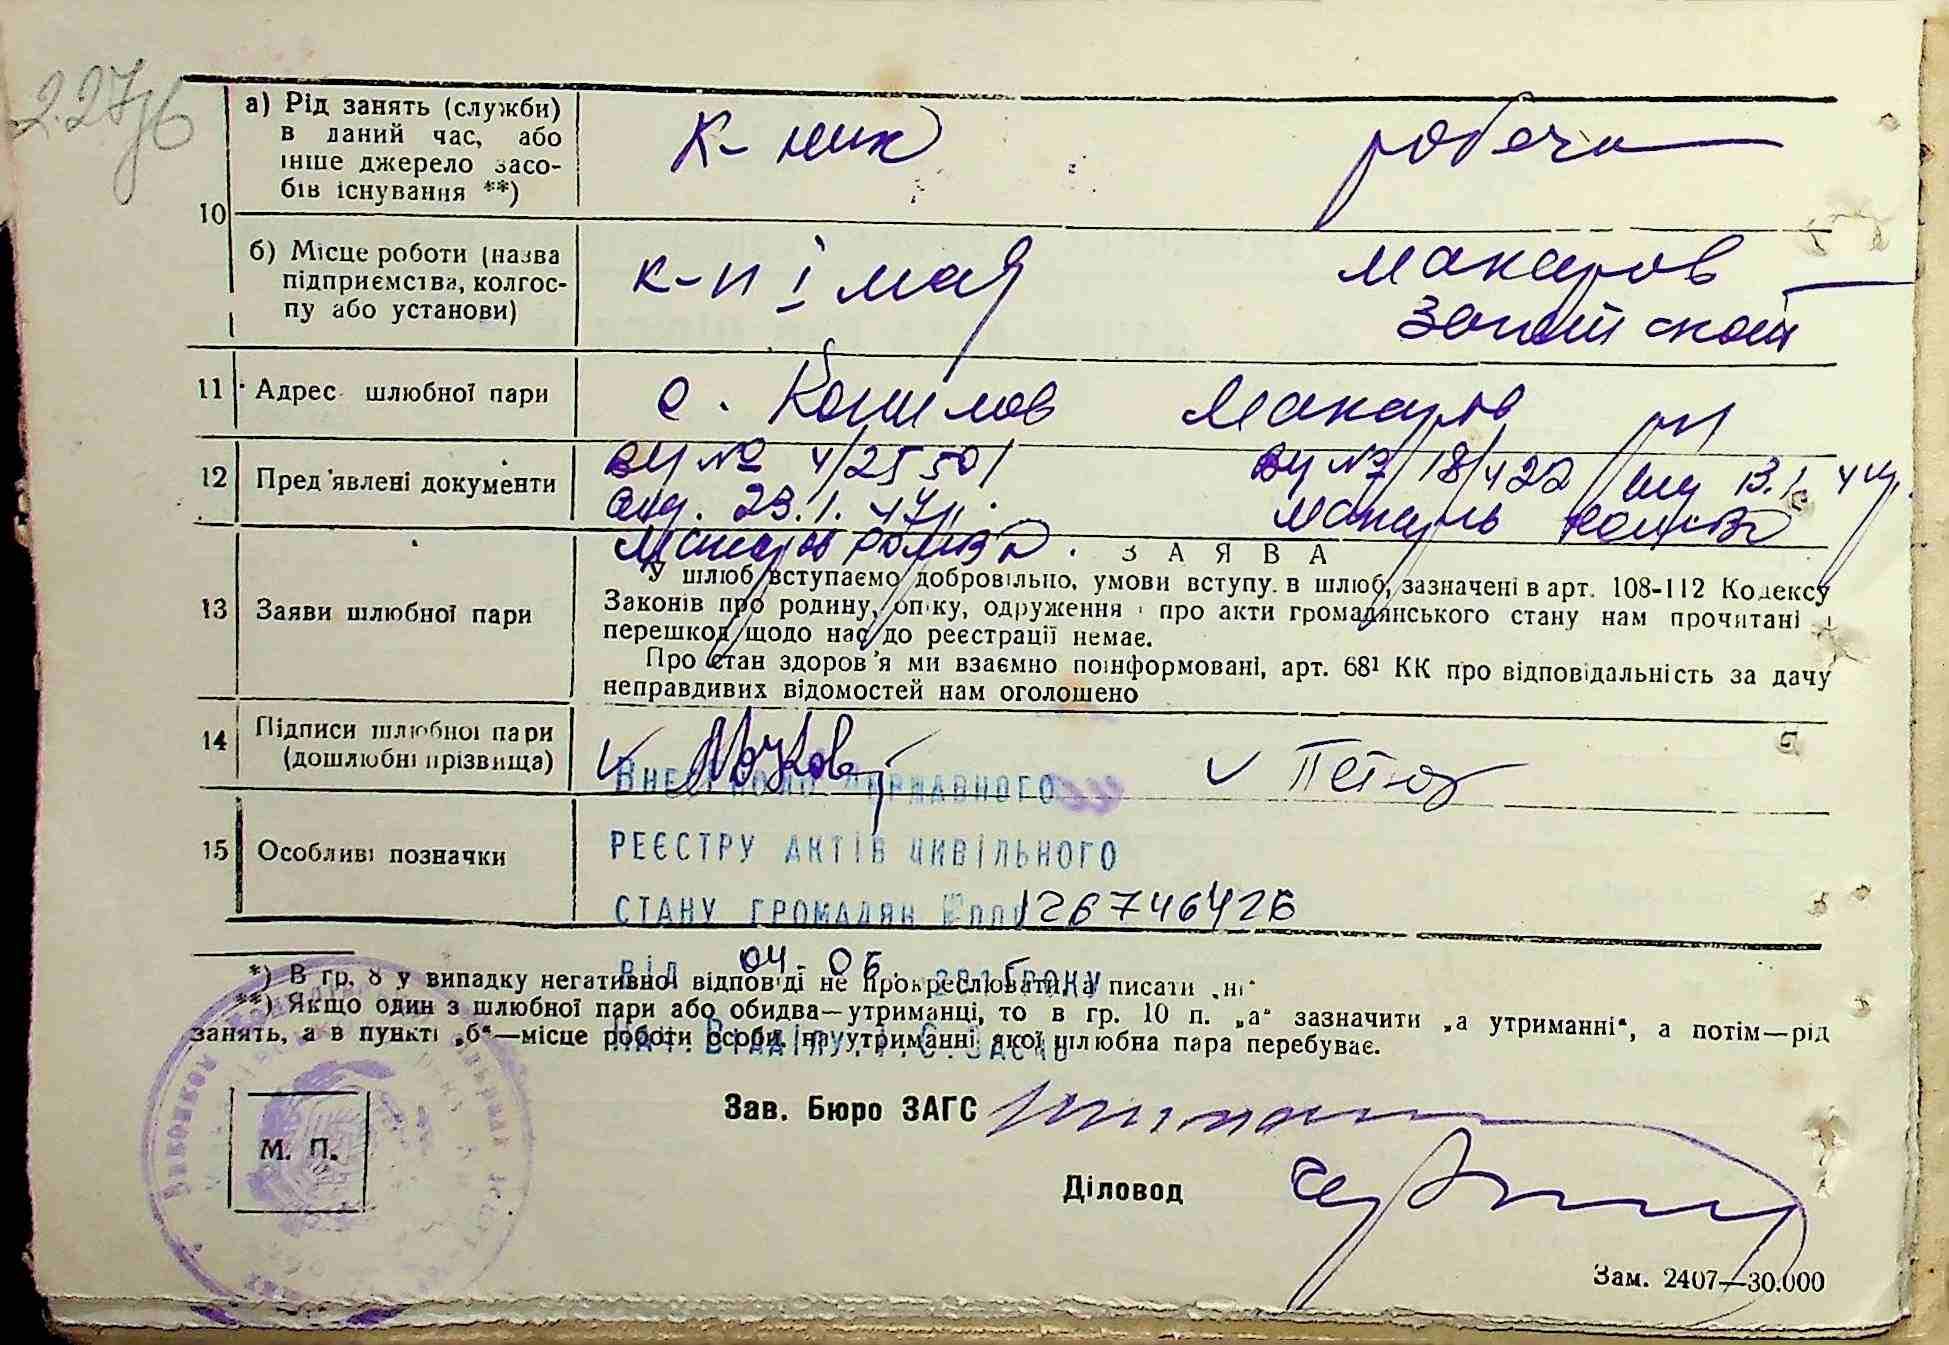 2.27 зб
а) Рід занять (служби)
в даний час, або
інше джерело засо-
бів існування **)
к-ник
робоча
10
б) Місце роботи (назва
підприємства, колгос-
пу або установи)
к-п 1 мая
Макаров
11
Адрес шлюбної пари
с. Копилов Макаров рн
12
Пред'явлені документи
ВУ № 4/25501
ВУ № 18/422 13.1.
вид. 23.1. 47 р.
13
Заяви шлюбної пари
ЗАЯВА
У шлюб вступаємо добровільно, умови вступу. в шлюб, зазначені в арт. 108-112 Кодексу
Законів про родину, опіку, одруження і про акти громадянського стану нам прочитані і
перешкод щодо нас до реєстрації немає.
Про стан здоров'я ми взаємно поінформовані, арт. 68¹ КК про відповідальність за дачу
неправдивих відомостей нам оголошено
14
Підписи шлюбної пари
(дошлюбні прізвища)
15
Особливі позначки
Державного
реєстру актів цивільного
стану громадян 126746426
від 04.06. року
*) В гр. 8 у випадку негативної відповіді не прокреслювати, а писати „ні"
**) Якщо один з шлюбної пари або обидва—утриманці, то в гр. 10 п. „а" зазначити „а утриманні", а потім—рід
занять, а в пункті „б"—місце роботи особи, на утриманні якої шлюбна пара перебуває.
М. П.
Зав. Бюро ЗАГС
Діловод
Зам. 2407—30.000